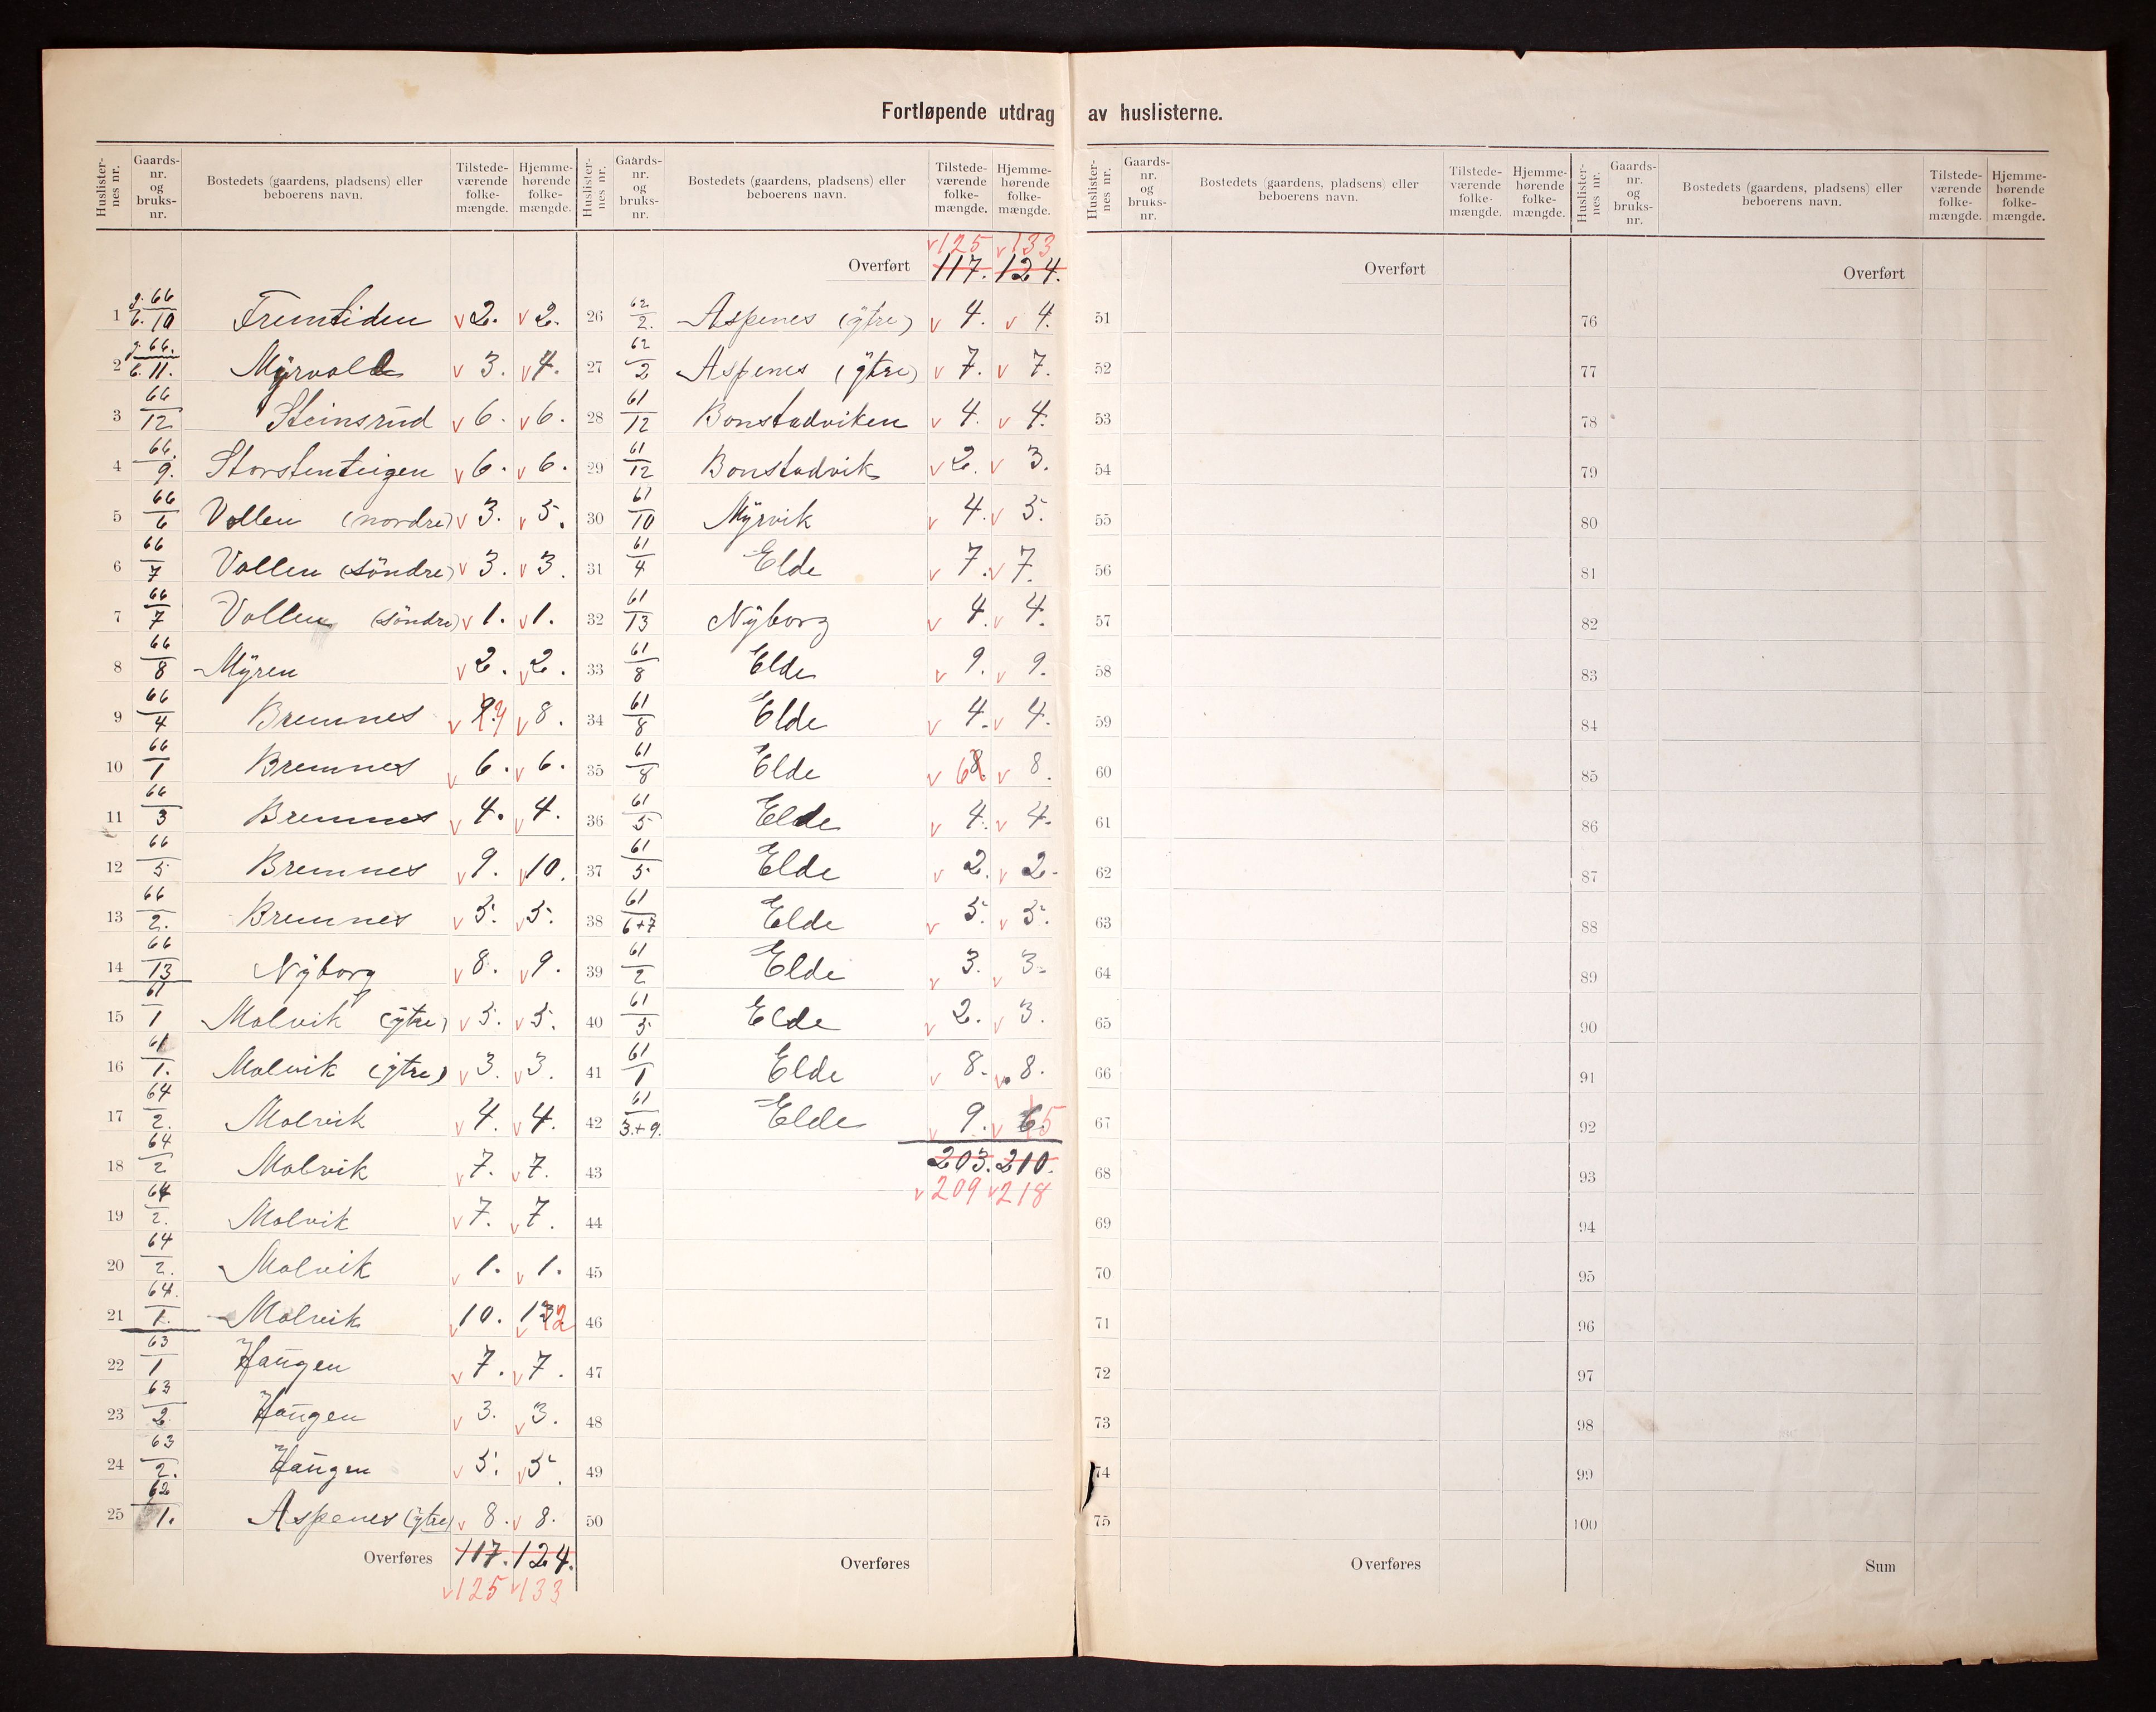 Fortløpende utdrag av huslisterne.
Huslisternes nr. Gaards-nr. og bruks-nr. Bostedets (gaardens, pladsens) eller beboerens navn. Tilstedeværende folkemængde. Hjemmehørende folkemængde.
1 g. 66 / b. 10 Fremtiden v 2. v 2.
2 g. 66. / b. 11. Mÿrvold v 3. v 4.
3 66/12 Steinsrud v 6. v 6.
4 66./9. Storstenteigen v 6. v 6.
5 66/6 Vollen (nordre) v 3. v 5.
6 66/7 Vollen (söndre) v 3. v 3.
7 66/7 Vollen (söndre) v 1. v 1.
8 66/8 Mÿren v 2. v 2.
9 66/4 Bremnes v 9 v 8.
10 66/1 Bremnes v 6. v 6.
11 66/3 Bremnes v 4. v 4.
12 66/5 Bremnes v 9. v 10.
13 66/2. Bremnes v 5. v 5.
14 66/13 Nÿborg v 8. v 9.
15 61/1 Molvik (ÿtre) v 5. v 5.
16 61/1. Molvik (ÿtre) v 3. v 3.
17 64/2. Molvik v 4. v 4.
18 64/2 Molvik v 7. v 7.
19 64/2. Molvik v 7. v 7.
20 64/2. Molvik v 1. v 1.
21 64./1. Molvik v 10. v 13 2
22 63/1 Haugen v 7. v 7.
23 63/2. Haugen v 3. v 3.
24 63/2. Haugen v 5. v 5.
25 62/1. Aspenes (ÿtre) v 8. v 8.
Overføres 117. 124.
v 125 v 133
Huslisternes nr. Gaards-nr. og bruks-nr. Bostedets (gaardens, pladsens) eller beboerens navn. Tilstedeværende folkemængde. Hjemmehørende folkemængde.
v 125 v 133
Overført 117. 124.
26 62/2. Aspenes (ÿtre) v 4. v 4.
27 62/2 Aspenes (ÿtre) v 7. v 7.
28 61/12 Bonstadviken v 4. v 4.
29 61/12 Bonstadvik v 2. v 3.
30 61/10 Mÿrvik v 4. v 5.
31 61/4 Elde v 7. v 7.
32 61/13 Nÿborg v 4. v 4.
33 61/8 Elde v 9. v 9.
34 61/8 Elde v 4. v 4.
35 61/8 Elde v 6 8 v 8.
36 61/5 Elde v 4. v 4.
37 61/5. Elde v 2. v 2.
38 61/6+7 Elde v 5. v 5.
39 61/2 Elde v 3. v 3.
40 61/5 Elde v 2. v 3.
41 61/1 Elde v 8. v 8.
42 61/3.+9. Elde v 9. v 6. 5
43 203. 210.
v 209 v 218
44
45
46
47
48
49
50
Overføres
Huslisternes nr. Gaards-nr. og bruks-nr. Bostedets (gaardens, pladsens) eller beboerens navn. Tilstedeværende folkemængde. Hjemmehørende folkemængde.
Overført
51
52
53
54
55
56
57
58
59
60
61
62
63
64
65
66
67
68
69
70
71
72
73
74
75
Overføres
Huslisternes nr. Gaards-nr. og bruks-nr. Bostedets (gaardens, pladsens) eller beboerens navn. Tilstedeværende folkemængde. Hjemmehørende folkemængde.
Overført
76
77
78
79
80
81
82
83
84
85
86
87
88
89
90
91
92
93
94
95
96
97
98
99
100
Sum